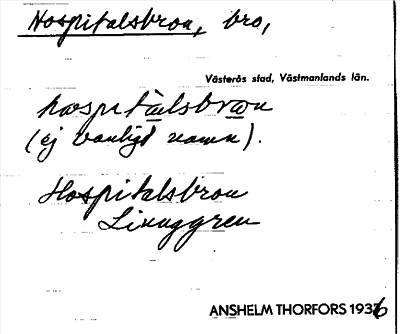 Hospitalsbron, bro,
Västerås stad, Västmanlands län.
hospitalsbron
(ej vanligt namn).
Hospitalsbron
Ljunggren
ANSHELM THORFORS 1936